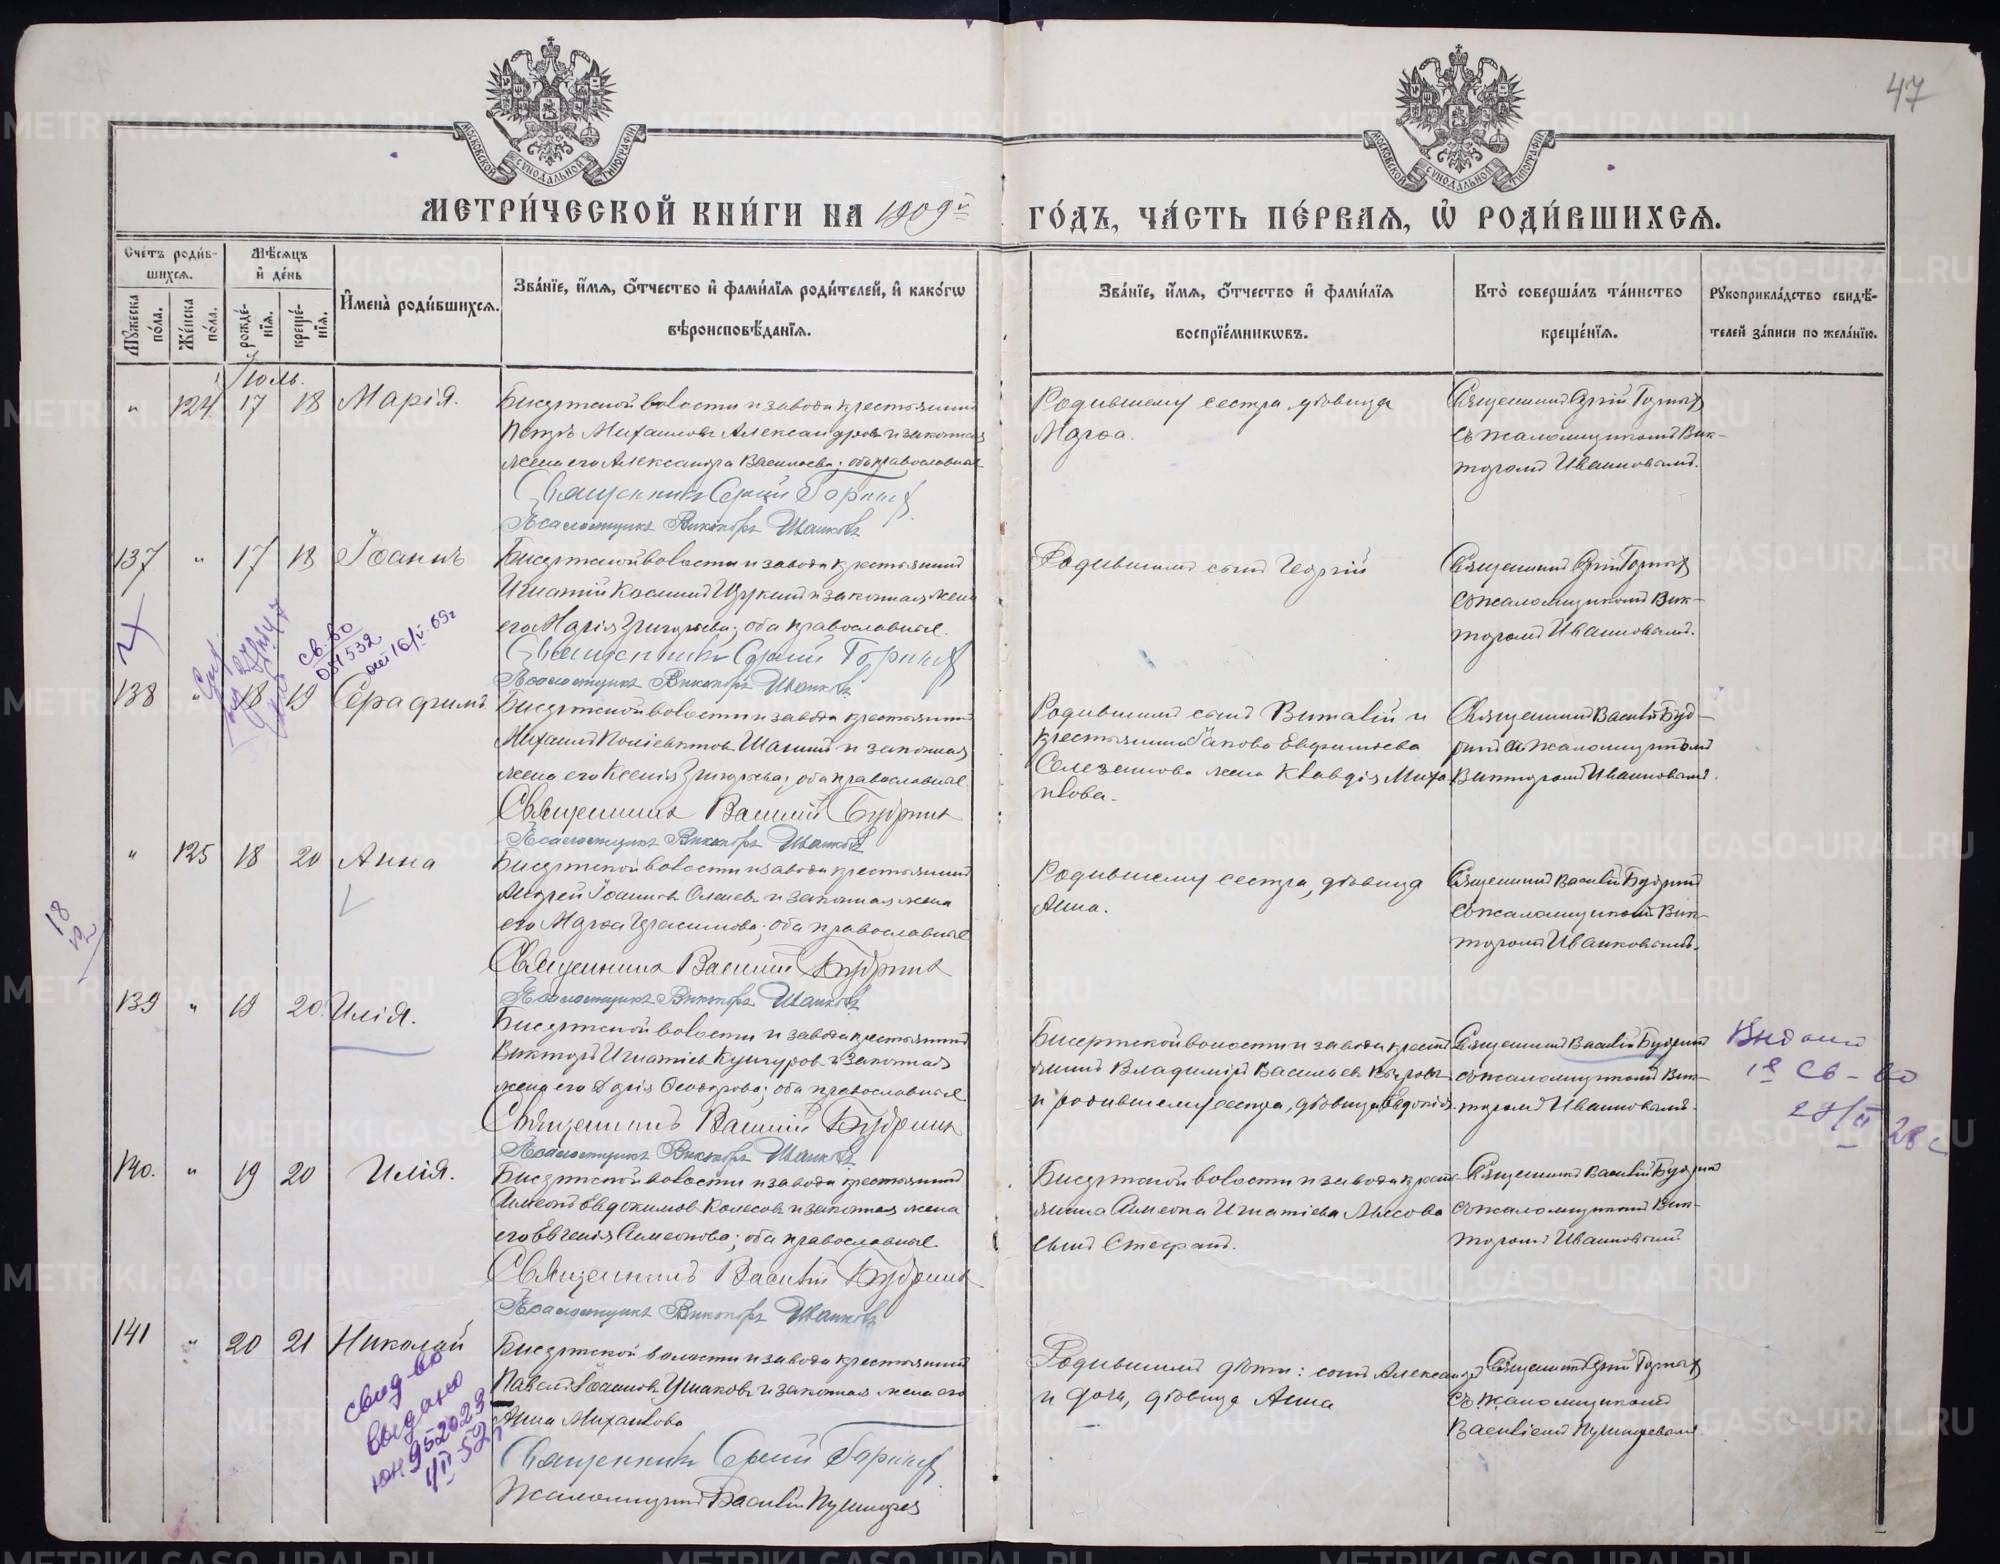 47
МОСКОВСКОЙ СѴНОДАЛЬНОЙ ТИПОГРАФІИ
МОСКОВСКОЙ СѴНОДАЛЬНОЙ ТИПОГРАФІИ
МЕТРИ́ЧЕСКОЙ КНИ́ГИ НА 1909й ГО́ДЪ, ЧА́СТЬ ПЕ́РВАЯ, Ѡ҆ РОДИ́ВШИХСЯ.
Сче́тъ роди́в-
шихся.
Мѣ́сяцъ
и҆ де́нь
Мꙋ́жеска по́ла.
Же́нска по́ла.
рожде́-
нїѧ.
креще́-
нїѧ.
И҆мена̀ роди́вшихсѧ.
Зва́нїе, и҆́мѧ, ѻ҆́тчество и҆ фами́лїѧ роди́телей, и҆ како́гѡ
вѣроисповѣ́данїѧ.
Зва́нїе, и҆́мѧ, ѻ҆́тчество и҆ фами́лїѧ
воспрїе́мникѡвъ.
Кто̀ соверша́лъ та́инство
креще́нїѧ.
Рꙋкоприкла́дство свидѣ́-
телей за́писи по жела́нїю.
Іюль.
" 124 17 18 Марія.
Бисертской волости и завода крестьянинъ
Петръ Михаиловъ Александровъ и законная
жена его Александра Васильева; оба православные
Священникъ Сергій Горныхъ
Псаломщикъ Викторъ Иванковъ
Родившему сестра, дѣвица
Марѳа.
Священникъ Сергій Горныхъ
съ псаломщикомъ Вик-
торомъ Иванковымъ.
137 " 17 18 Іоаннъ
Бисертской волости и завода крестьянинъ
Игнатій Косьминъ и законная жена
его Марія Григорьева; оба православные.
Священникъ Сергій Горныхъ
Псаломщикъ Викторъ Иванковъ
Родившимъ сынъ Георгій
Священникъ Сергій Горныхъ
съ псаломщикомъ Вик-
торомъ Иванковымъ.
св-во
051532
от 16/V-69г
138 " 18 19 Серафимъ
Бисертской волости и завода крестьянинъ
Михаилъ Поліевктовъ Шалинъ и законная
жена его Ксенія Григорьева; оба православные.
Священникъ Василій Будринъ
Псаломщикъ Викторъ Иванковъ
Родившимъ сынъ Виталій и
крестьянина Іакова Евдокимова
Селезнева жена Клавдія Миха
илова.
Священникъ Василій Буд-
ринъ съ псаломщикомъ
Викторомъ Иванковымъ.
" 125 18 20 Анна
Бисертской волости и завода крестьянинъ
Андрей Іоанновъ и законная жена
его Марѳа Герасимова; оба православные
Священникъ Василій Будринъ
Псаломщикъ Викторъ Иванковъ
Родившему сестра, дѣвица
Анна.
Священникъ Василій Будринъ
съ псаломщикомъ Вик-
торомъ Иванковымъ.
18
139 " 19 20. Илія.
Бисертской волости и завода крестьянинъ
Викторъ Игнатіевъ Кунгуровъ и законная
жена его Дарія Ѳеодорова; оба православные
Священникъ Василій Будринъ
Псаломщикъ Викторъ Иванковъ
Бисертской волости и завода кресть
янинъ Владиміръ Васильевъ
и родившему сестра, дѣвица Евдокія.
Священникъ Василій Будринъ
съ псаломщикомъ Вик-
торомъ Иванковымъ.
Выдано
1е св-во
28г
140. " 19 20 Илія.
Бисертской волости и завода крестьянинъ
Симеонъ Евдокимовъ Колесовъ и законная жена
его Евгенія Симеонова; оба православные.
Священникъ Василій Будринъ
Псаломщикъ Викторъ Иванковъ
Бисертской волости и завода кресть
янина Симеона Игнатіева
сынъ Стефанъ.
Священникъ Василій Будринъ
съ псаломщикомъ Вик-
торомъ Иванковымъ
141 " 20 21 Николай
Бисертской волости и завода крестьянинъ
Павелъ Іоанновъ Ушаковъ и законная жена его
Анна Михаилова
Священникъ Сергій Горныхъ
Псаломщикъ Василій
Родившимъ дѣти: сынъ Александръ
и дочь, дѣвица Анна
Священникъ Сергій Горныхъ
съ псаломщикомъ
Василіемъ
свид-во
выдано
ЮН 952023
4/II-52г